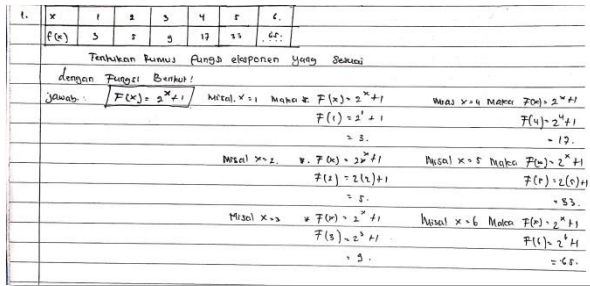 1. x 1 2 3 4 5 6.
f(x) 3 5 9 17 33 65.
Tentukan Rumus fungsi eksponen yang sesuai
dengan Fungsi Berikut!
jawab: F(x) = 2^x+1
Misal, x=1 Maka * F(x) = 2^x+1
F(1) = 2^1 + 1
= 3.
Misal x=2. *. F(x) = 2x^x+1
F(2) = 2(2)+1
= 5.
Misal x=3 * F(x) = 2^x +1
F(3) = 2^3 +1
= 9.
x=4 Maka F(x) = 2^x +1
F(4) = 2^4+1
= 17.
Misal x=5 Maka F(x) = 2^x +1
F(5) = 2(5)+1
= 33.
Misal x=6 Maka F(x) = 2^x+1
F(6) = 2^6+1
= 65.